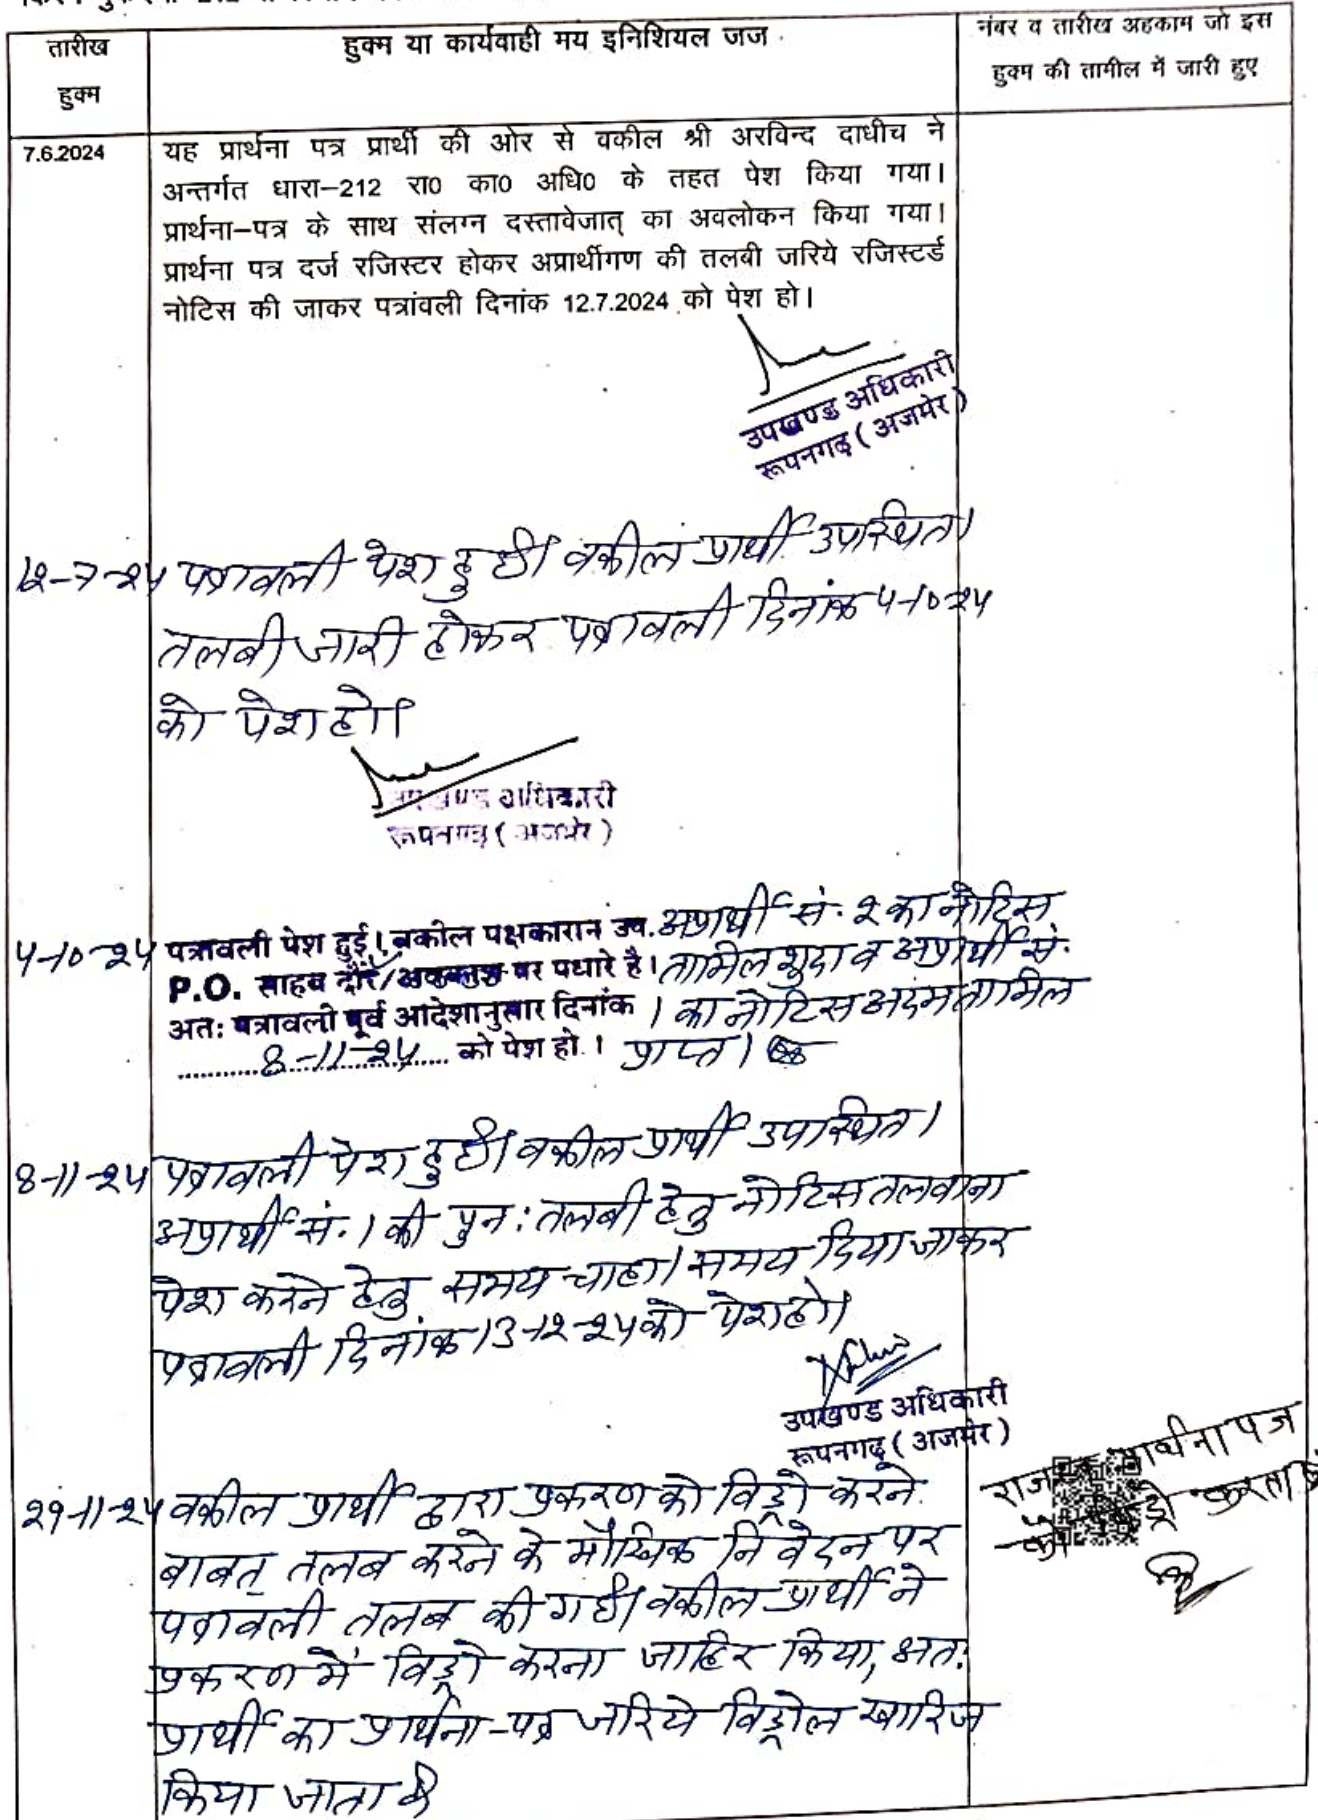 तारीख
हुक्म
हुक्म या कार्यवाही मय इनिशियल जज
नंबर व तारीख अहकाम जो इस
हुक्म की तामील में जारी हुए
7.6.2024
यह प्रार्थना पत्र प्रार्थी की ओर से वकील श्री अरविन्द दाधीच ने
अन्तर्गत धारा–212 रा0 का0 अधि0 के तहत पेश किया गया।
प्रार्थना–पत्र के साथ संलग्न दस्तावेजात् का अवलोकन किया गया।
प्रार्थना पत्र दर्ज रजिस्टर होकर अप्रार्थीगण की तलबी जरिये रजिस्टर्ड
नोटिस की जाकर पत्रांवली दिनांक 12.7.2024 को पेश हो।
उपखण्ड अधिकारी
रूपनगढ़ (अजमेर)
12-7-24 पत्रावली पेश हुई। वकील प्रार्थी उपस्थित।
तलबी जारी होकर पत्रावली दिनांक 4-10-24
को पेश हो।
उपखण्ड अधिकारी
रूपनगढ़ (अजमेर)
4-10-24 पत्रावली पेश हुई। वकील पक्षकारान उप. अप्रार्थी सं. 2 का नोटिस
P.O. साहब दौरे/अवकाश पर पधारे है। तामिल शुदा व अप्रार्थी सं.
अतः पत्रावली पूर्व आदेशानुसार दिनांक 1 का नोटिस अदम तामिल
8-11-24 को पेश हो। प्राप्त।
8-11-24 पत्रावली पेश हुई। वकील प्रार्थी उपस्थित।
अप्रार्थी सं. 1 की पुन: तलबी हेतु नोटिस तलवाना
पेश करने हेतु समय चाहा। समय दिया जाकर
पत्रावली दिनांक 13-12-24 को पेश हो।
उपखण्ड अधिकारी
रूपनगढ़ (अजमेर)
29-11-24 वकील प्रार्थी द्वारा प्रकरण को विड्रो करने
बाबत् तलब करने के मौखिक निवेदन पर
पत्रावली तलब की गई। वकील प्रार्थी ने
प्रकरण में विड्रो करना जाहिर किया, अत:
प्रार्थी का प्रार्थना-पत्र जरिये विड्रोल खारिज
किया जाता है
प्रार्थना पत्र
को विड्रो करता हूं